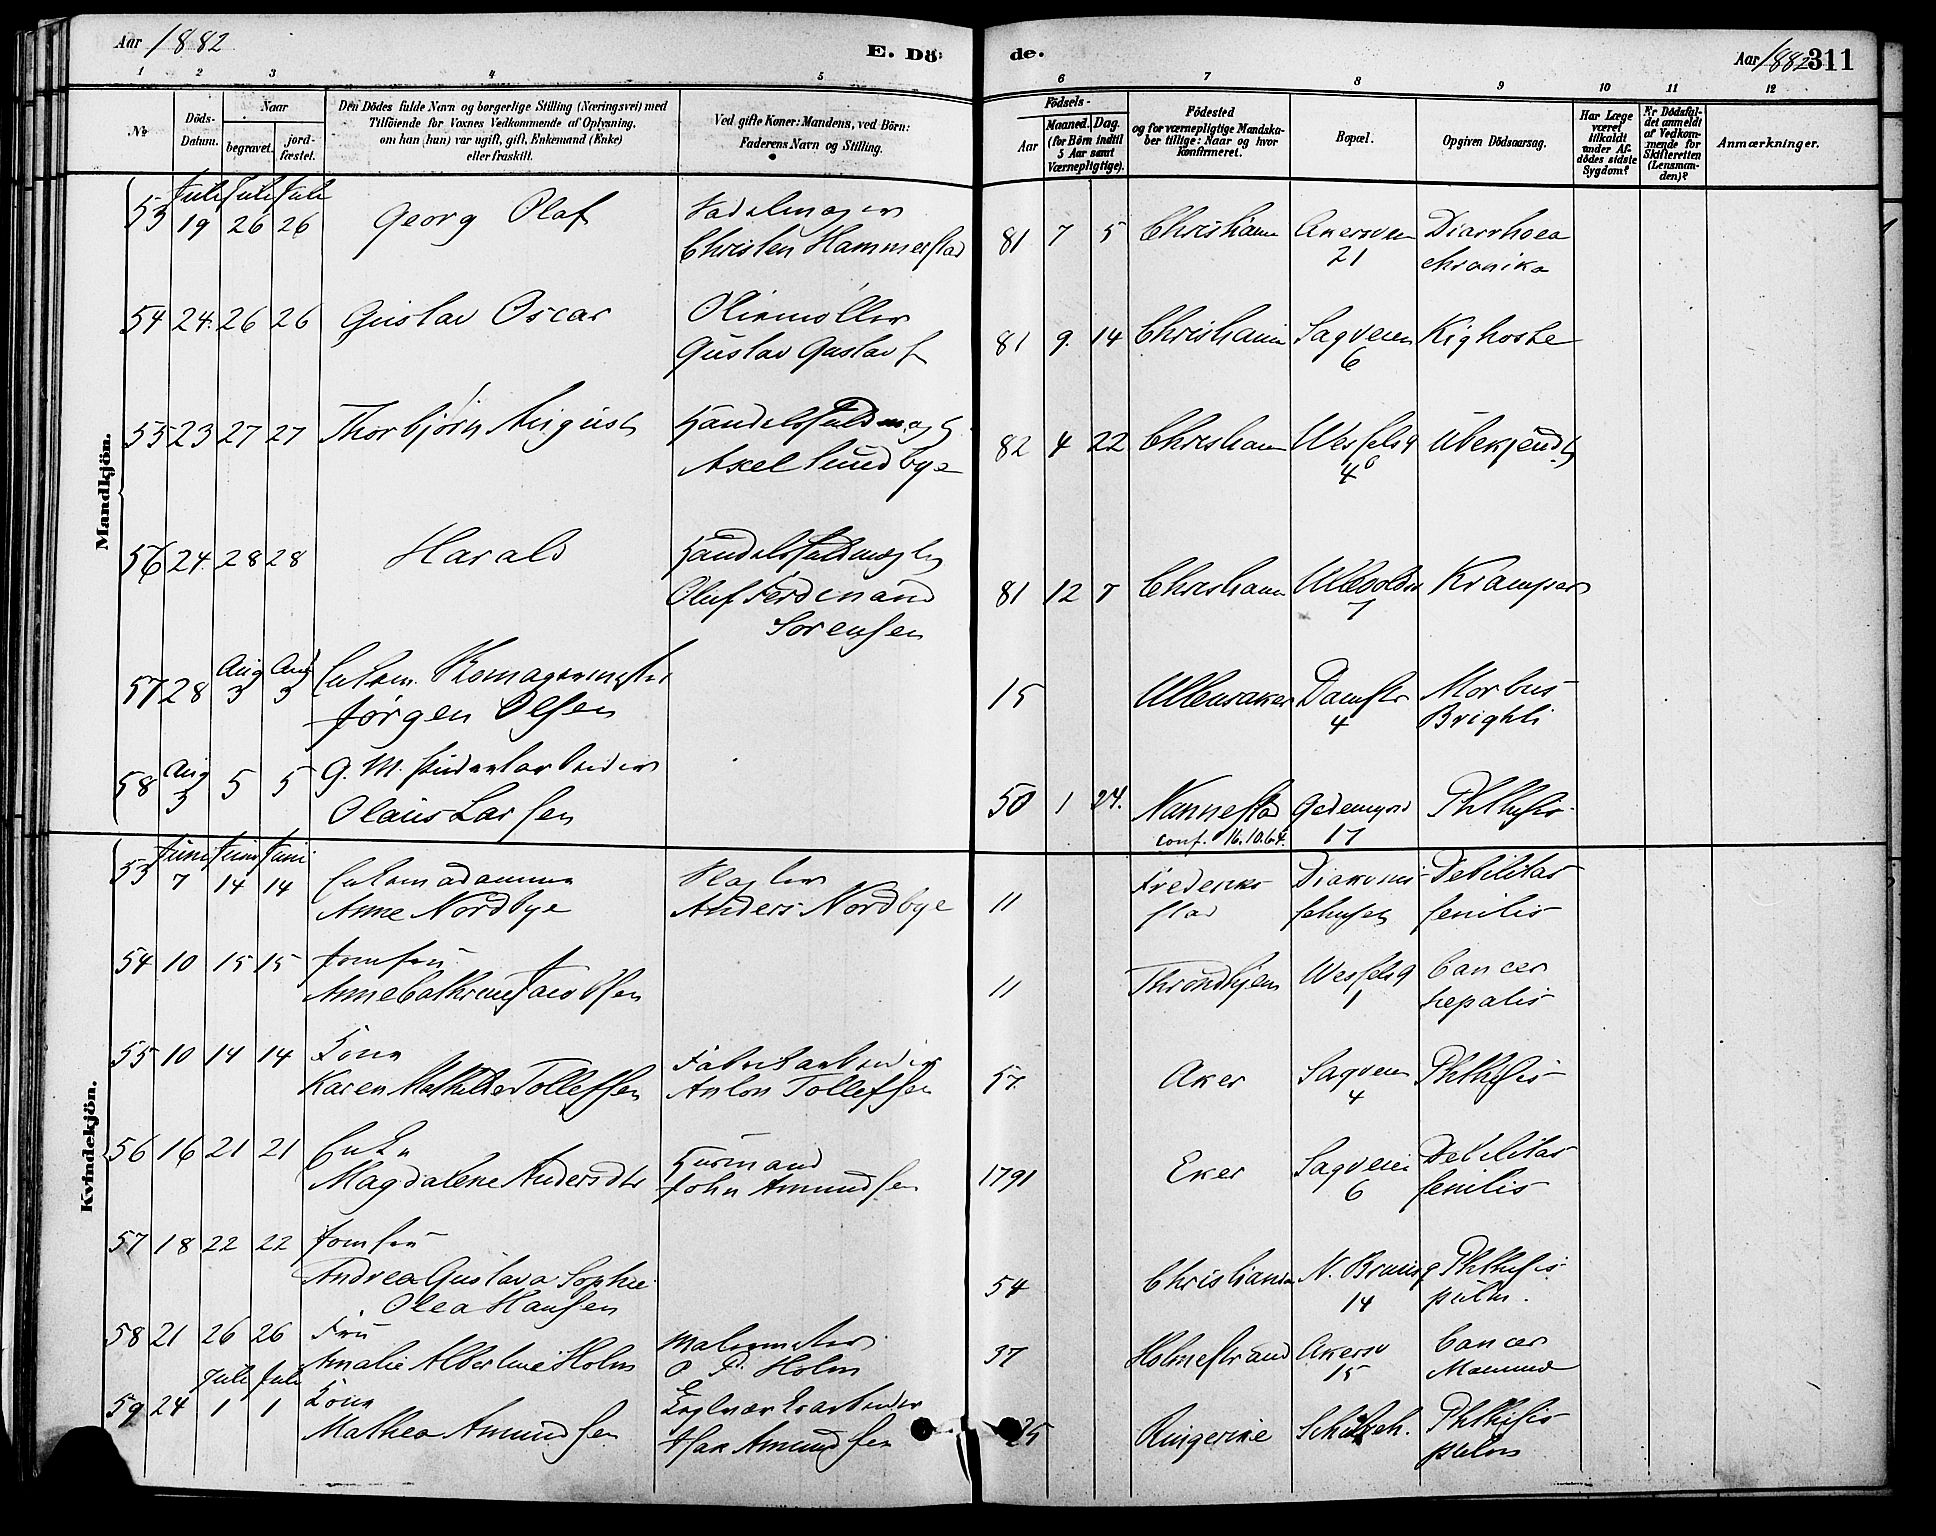 Aar 1882
E. Dö-
de.
Aar 1882 311
1 2 3 4 5 6 7 8 9 10 11 12
No
Döds-
Datum.
Naar
begravet.
jord-
fæstet.
Den Dödes fulde Navn og borgerlige Stilling (Næringsvei) med
Tilföiende for Voxnes Vedkommende af Oplysning,
om han (hun) var ugift, gift, Enkemand (Enke)
eller fraskilt.
Ved gifte Koner: Mandens, ved Börn:
Faderens Navn og Stilling.
Födsels-
Aar
Maaned. Dag.
(for Börn indtil
5 Aar samt
Værnepligtige).
Födested
og for værnepligtige Mandska-
ber tillige: Naar og hvor
konfirmeret.
Bopæl.
Opgiven Dödsaarsag.
Har Læge
været
tilkaldt
under Af-
dödes sidste
Sygdom?
Er Dödsfal-
det anmeldt
af Vedkom-
mende for
Skifteretten
(Lensman-
den)?
Anmærkninger.
Mandkjön.
Juli Juli Juli
53 19 26 26 Georg Olaf
Christen Hammerstad
81 7 5 Christiania
21
Diarrhoea
chronika
54 24. 26 26 Gustav Oscar
Oliemøller
Gustav Gustavs
81 9. 14 Christiania Sagveien
6
Kighoste
55 23 27 27 Thorbjørn August
Handelsfuldmægt
Axel Sundbye
82 4 22 Christiania Wesselsg
4
Ubekjendt
56 24. 28 28 Harald
Handelsfuldmægtig
Oluf Ferdinand
Sørensen
81 12 Christiania
7
Krampar
57 28 Aug 3 Aug 3
Enkem. Skomagermester
Jørgen Olsen
15 Ullensaker Damstr
4
Morbus
Brighti
58 Aug 3 5 5
Olaus Larsen
50 1 24. Nannestad
conf. 16.10.64.
17
Phthisis
Kvindekjön.
Juni Juni Juni
53 7 14 14 Enkemadamme
Anne Nordbye
Anders Nordbye
11 Frederik-
stad
Diakonis-
sehuset
Debilitas
senilis
54 10 15 15 Jomfru
Anne Cathrine Jacobsen
11 Throndhjem Wesselsg
1
Cancer
hepatis
55 10 14 14 Kone
Karen Mathilde Tollefsen
Fabrikarbeider
Anton Tollefsen
57. Aker Sagveien
4
Phthisis
56 16 21 21 Enke
Magdalene Andersdtr
Husmand
John Amundsen
1791 Eker Sagveien
6
Debilitas
senilis
57 18 22 22 Jomfru
Andrea Gustava Sophie
Olea Hansen
54 Christiania N. Brunsg
14
Phthisis
pulm.
58 21 26 26 Fru
Amalie Albertine Holm
Malermester
O P Holm
37 Holmestrand Akersv
15
Cancer
Juli Juli
59 24 1 1 Kone
Mathea Amundsen
Amundsen
25 Ringerike
Phthisis
pulm